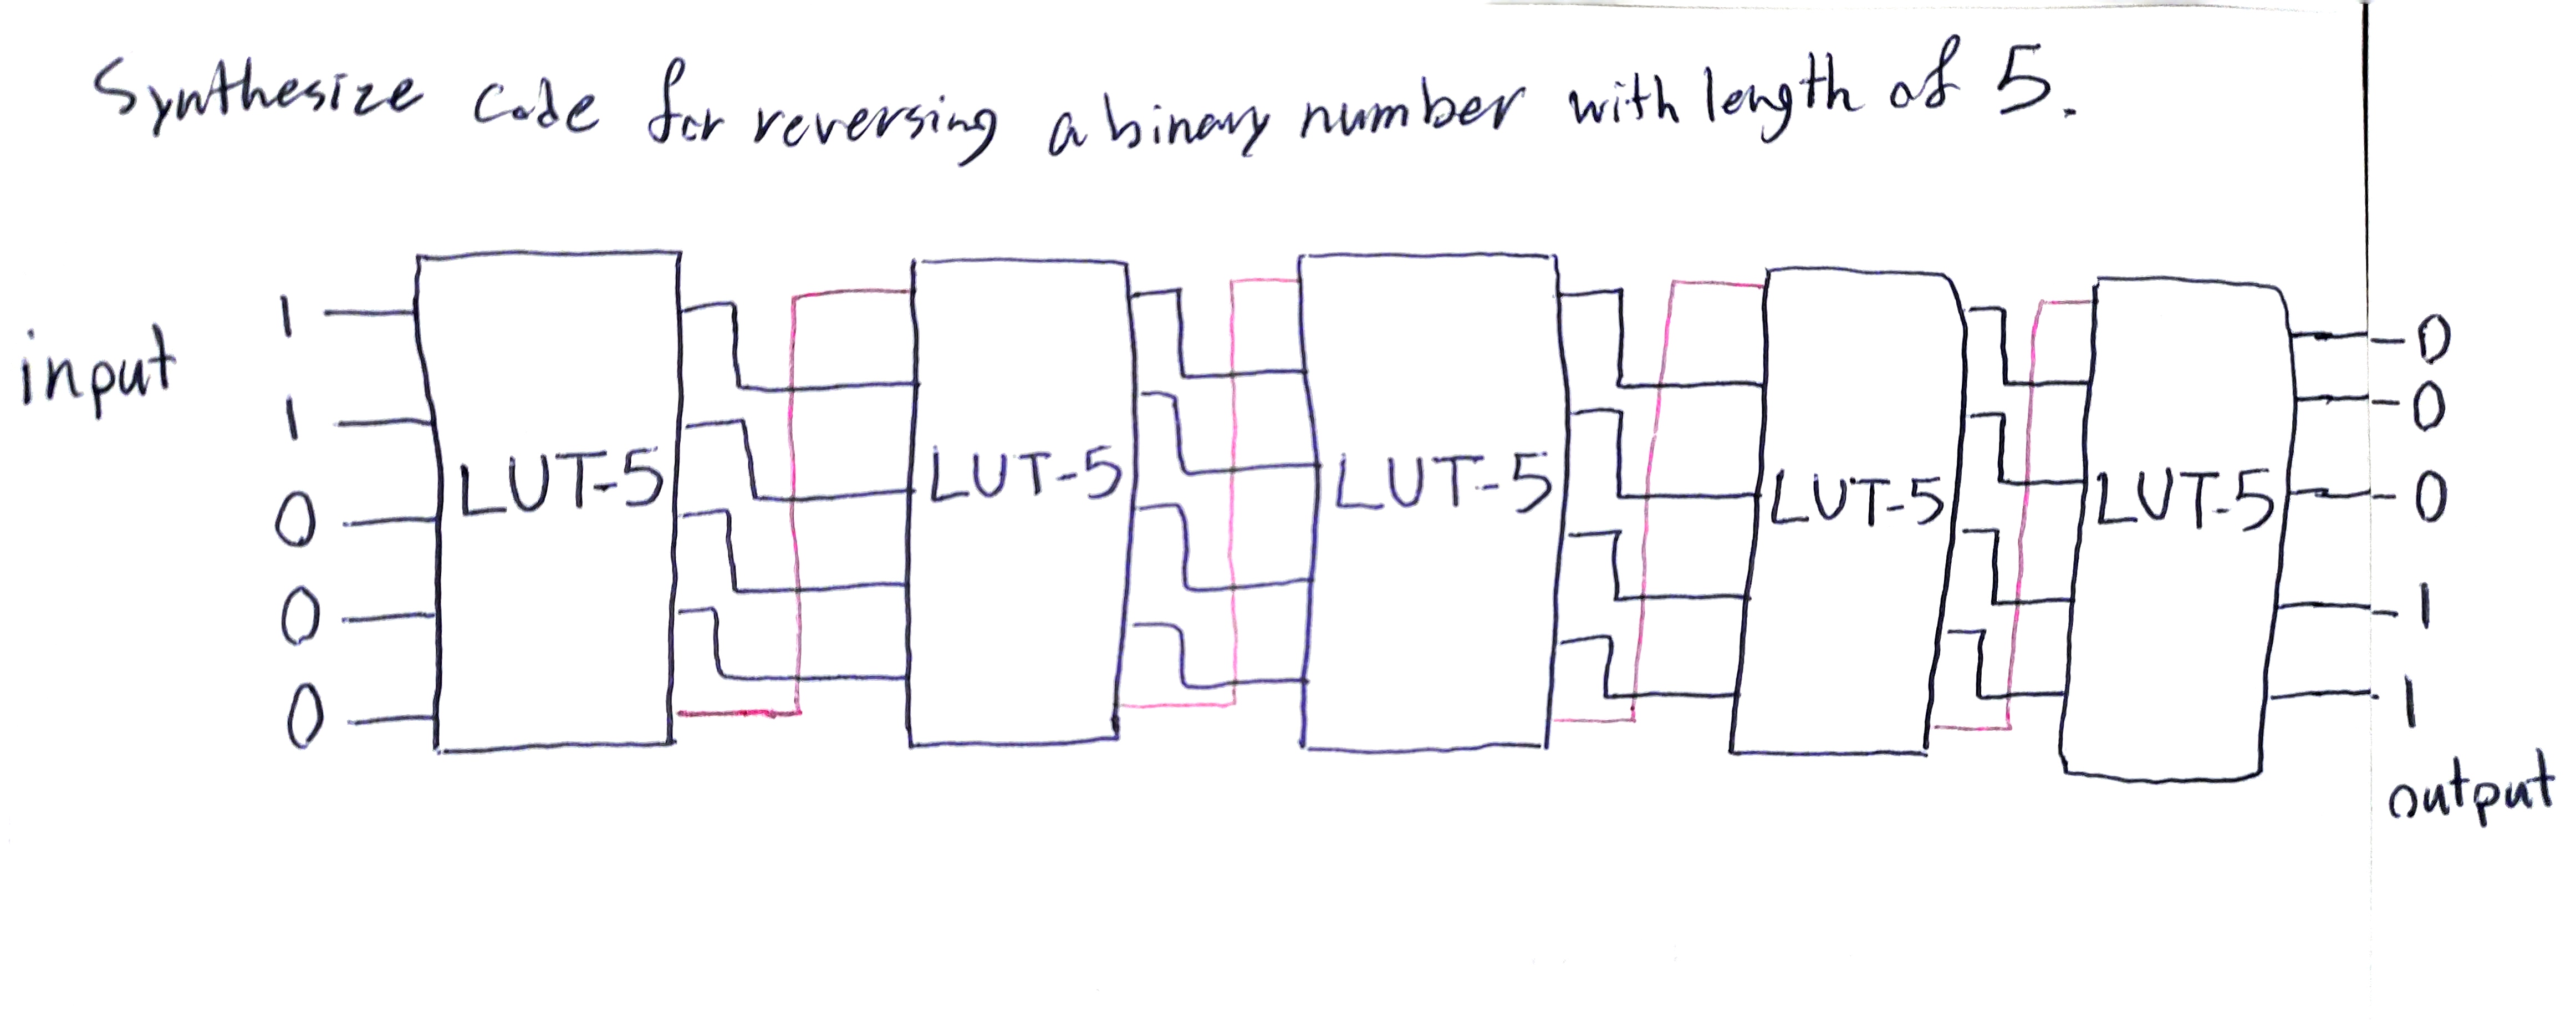 Synthesize code for reversing a binary number with length of 5.
input
1
1
0
0
0
LUT-5
LUT-5
LUT-5
LUT-5
LUT-5
0
0
0
1
1
output